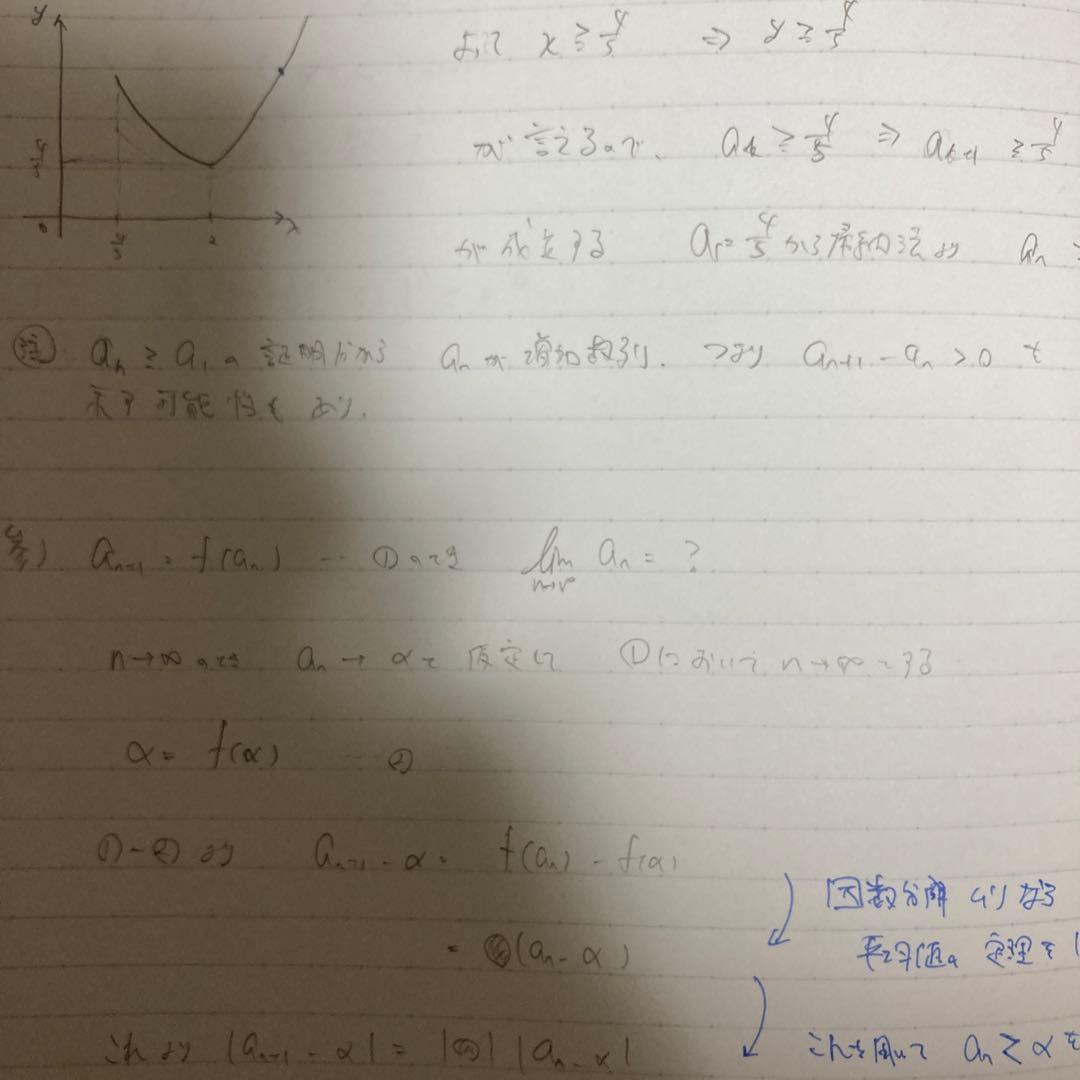 y
よって x ≧ 4/5 ⇒ y ≧ 4/5
4/5
が言えるので、 a_k ≧ 4/5 ⇒ a_{k+1} ≧ 4/5
0 4/5 2 x
が成立する a_1 = 4/5 から帰納法より a_n ≧
注 a_n ≧ a_1 の証明だから a_n が増加数列、つまり a_{n+1} - a_n > 0 を
示す可能性もあり。
参) a_{n+1} = f(a_n) … ①のとき lim_{n→∞} a_n = ?
n→∞のとき a_n → α と仮定して ①において n→∞とする
α = f(α) … ②
①-②より a_{n+1} - α = f(a_n) - f(α)
因数分解 ムリなら
= (a_n - α)
平均値の定理を
これより |a_{n+1} - α| = | | |a_n - α|
これを用いて a_n ≷ α を